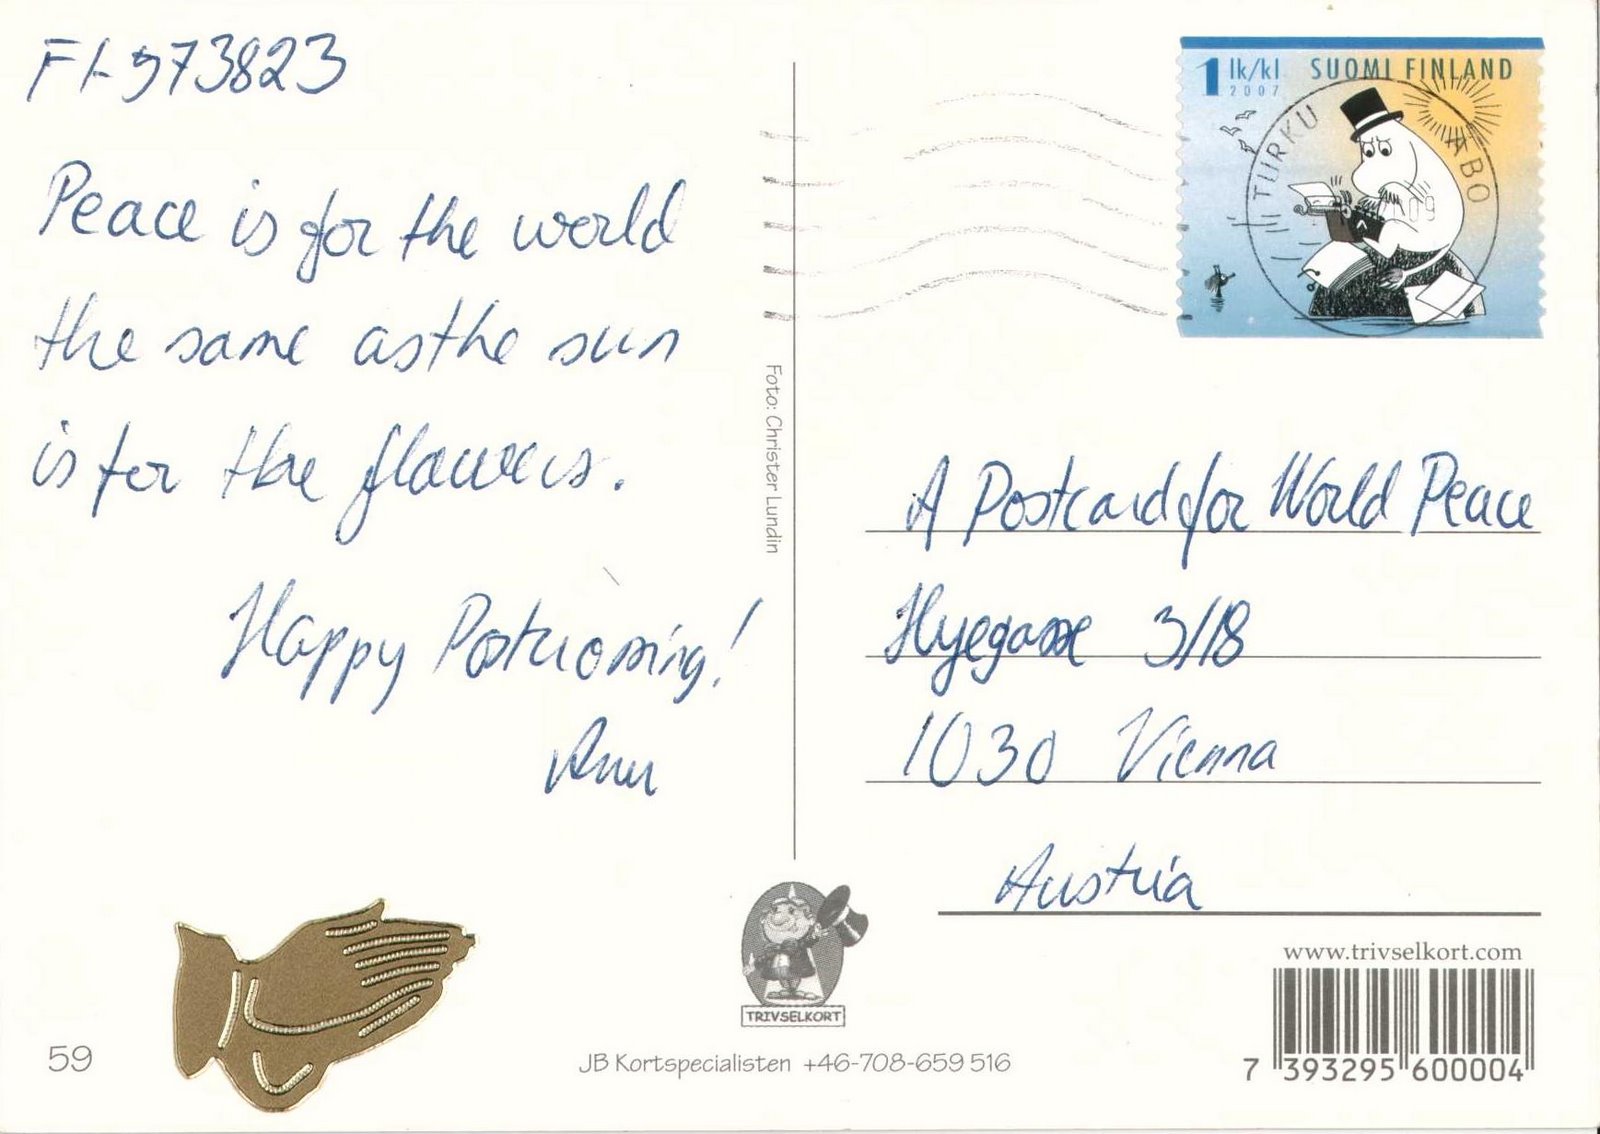 FI-573823
Peace is for the world
the same as the sun
is for the flowers.
Happy Postcrossing!
Ann
59
Foto: Christer Lundin
TRIVSELKORT
JB Kortspecialisten +46-708-659 516
1 lk/kl SUOMI FINLAND
2007
TURKU ÅBO
A Postcard for World Peace
Hyegasse 3/18
1030 Vienna
Austria
www.trivselkort.com
7 393295 600004